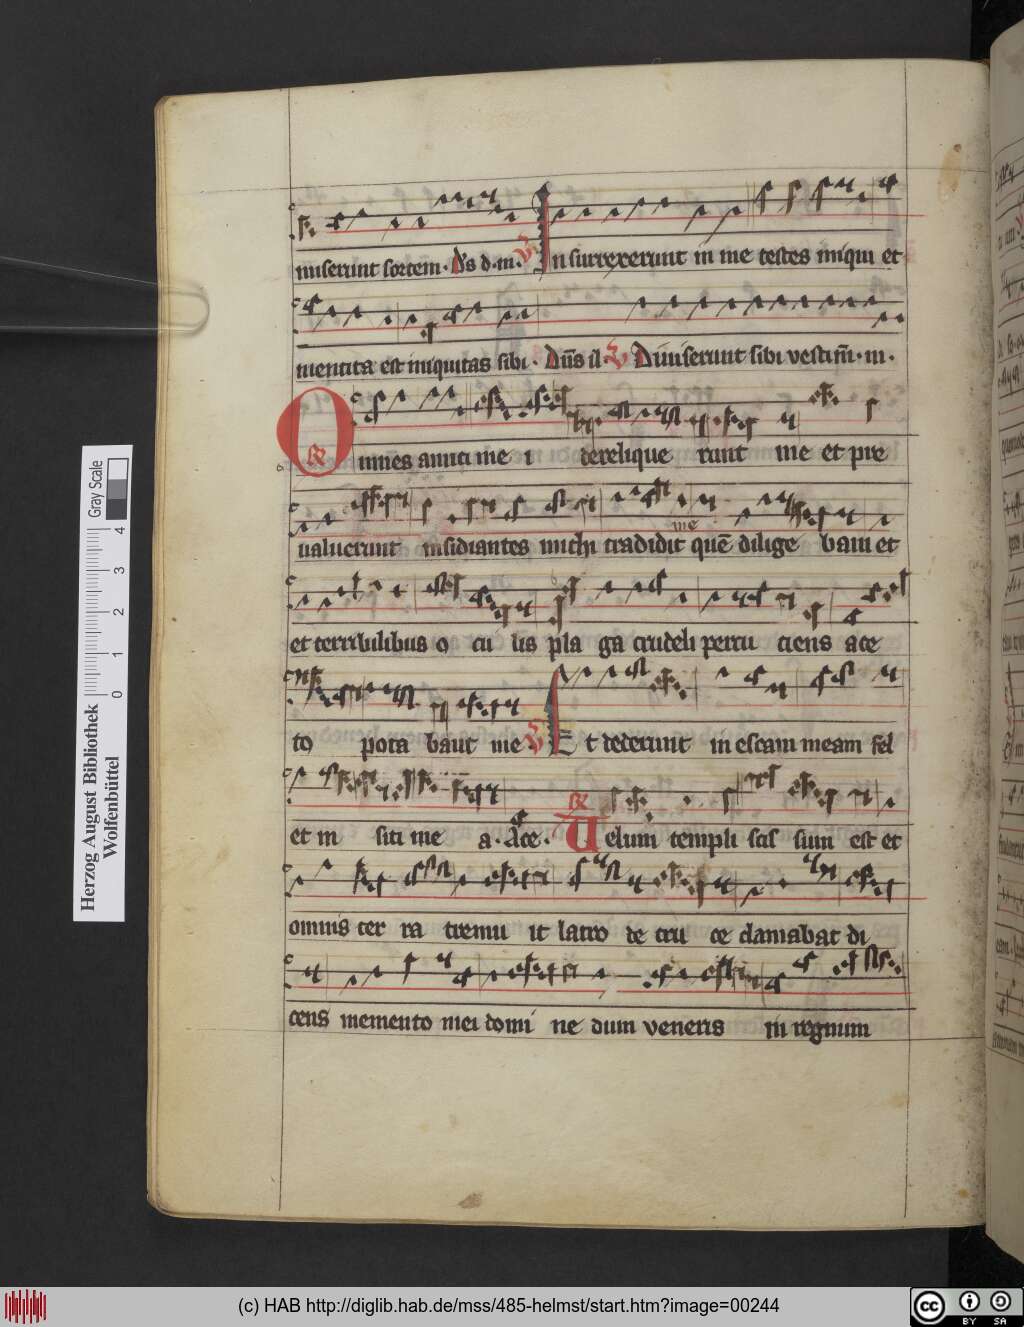 miserunt sortem · ds d · m · V In surrexerunt in me testes iniqui et
mentita est iniquitas sibi · Dn̄s il V Diuiserunt sibi vestim̄ · m ·
R Omnes amici me i derelique runt me et pre
me
ualuerunt insidiantes michi tradidit quē dilige bam et
et terribilibus o cu lis pla ga crudeli percu ciens ace
to pota bant me V Et dederunt in escam meam fel
et in siti me a · Ace · R Uelum templi scis sum est et
omnis ter ra tremu it latro de cru ce clamabat di
cens memento mei domi ne dum veneris in regnum
Herzog August Bibliothek
Wolfenbüttel
Gray Scale
0 1 2 3 4
(c) HAB http://diglib.hab.de/mss/485-helmst/start.htm?image=00244
cc BY SA